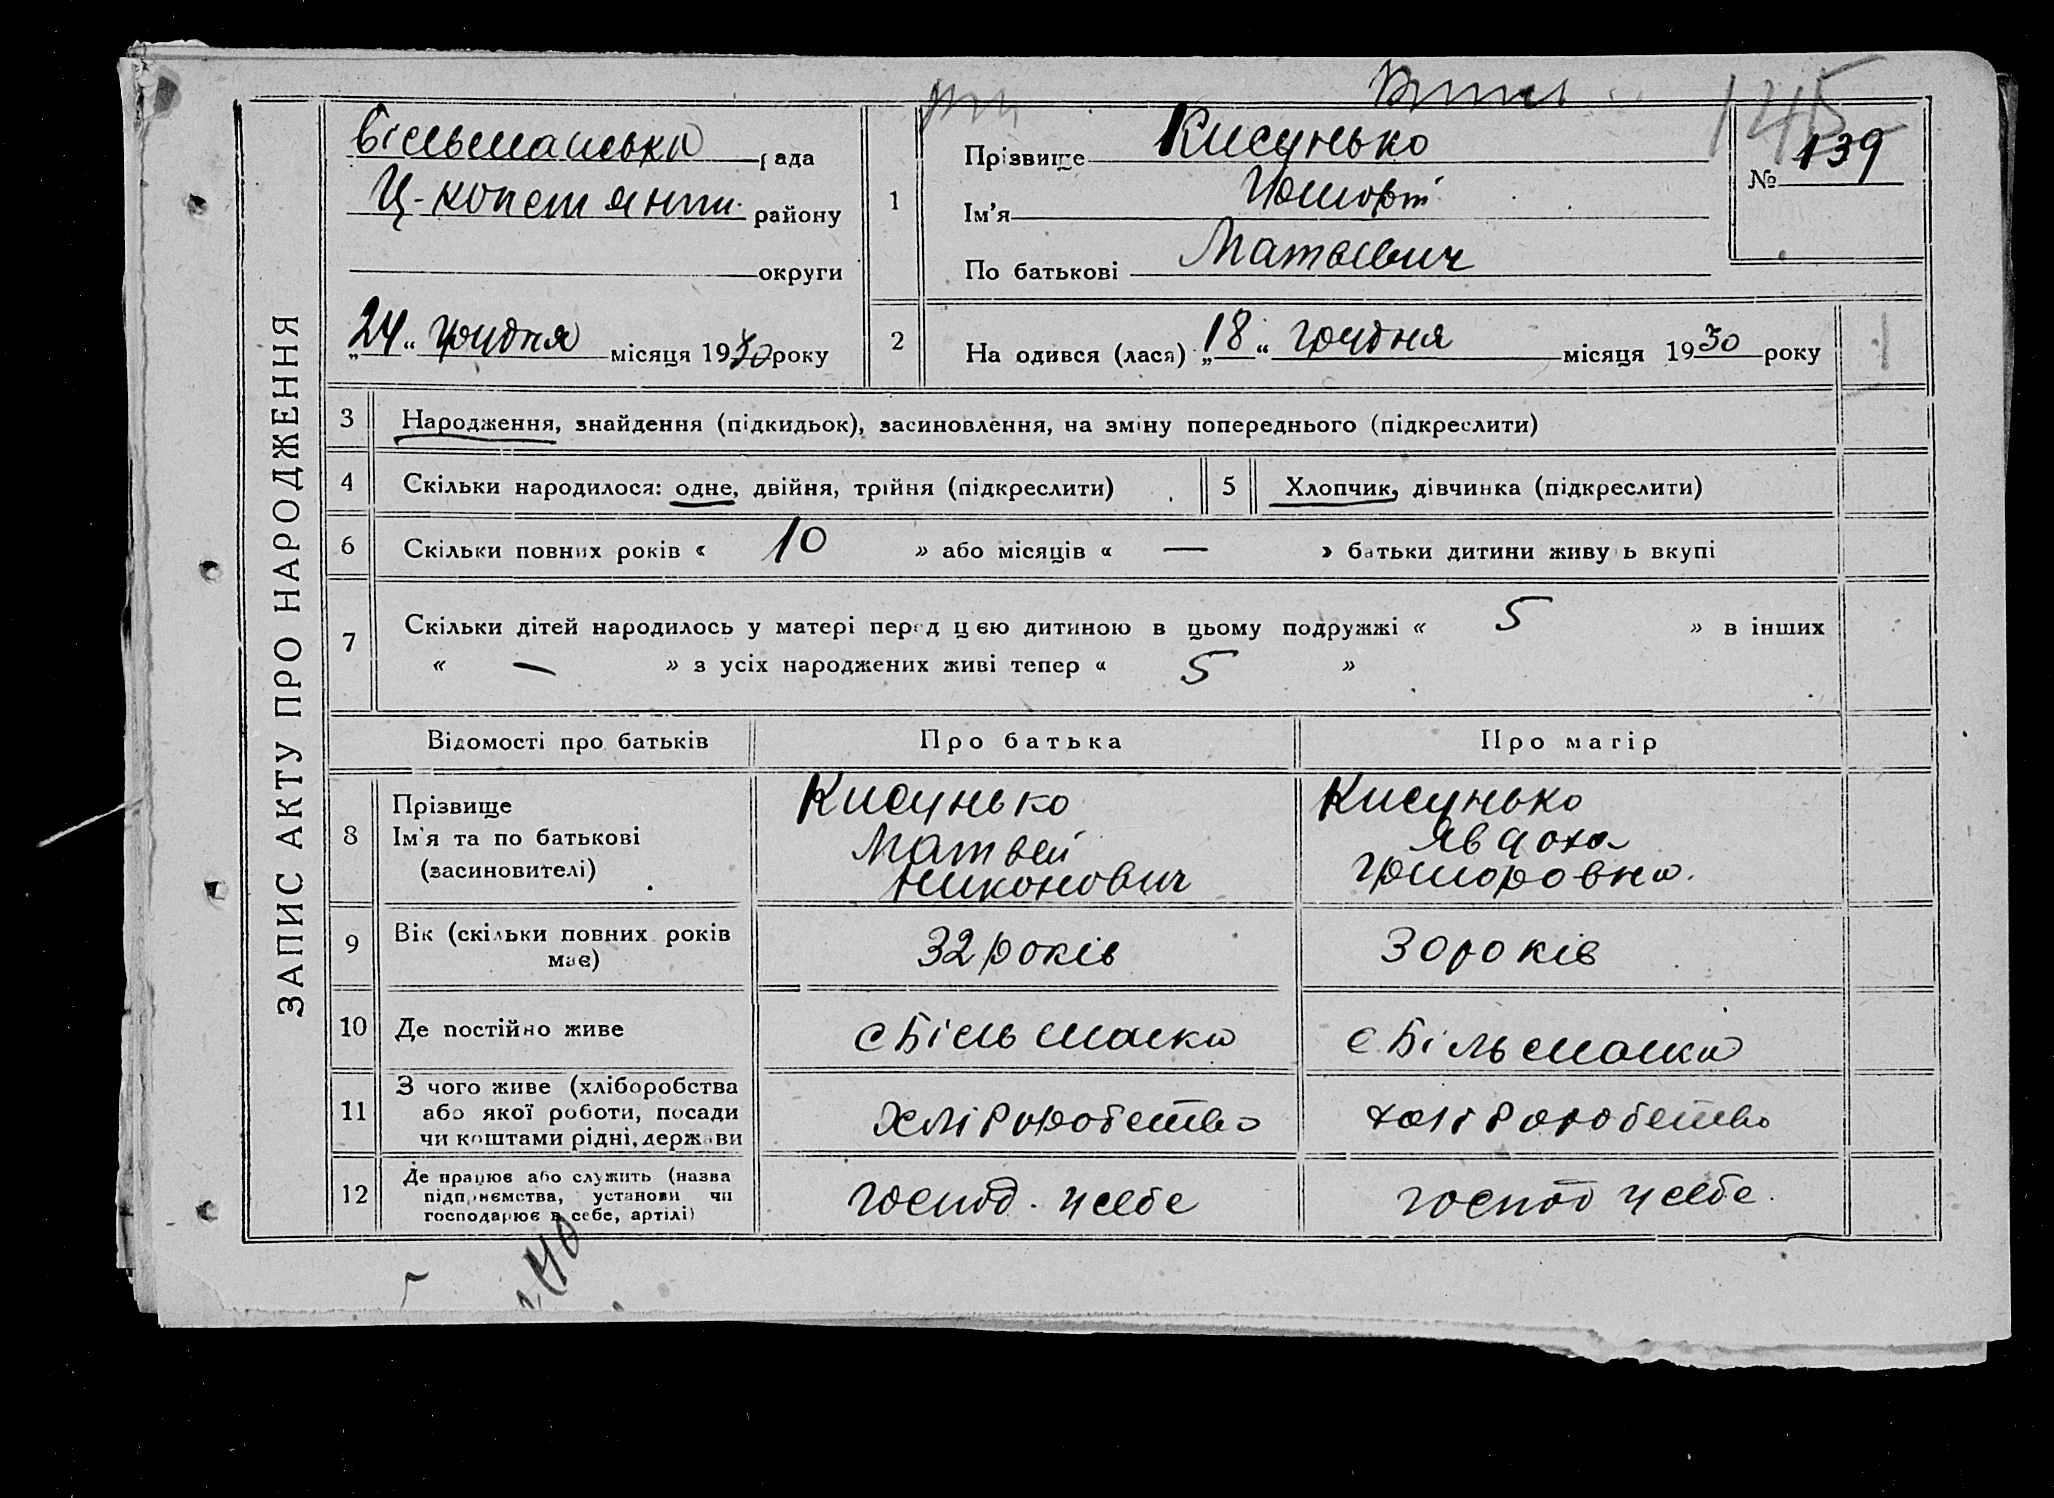 ЗАПИС АКТУ ПРО НАРОДЖЕННЯ
Більманська рада
Ц-констянти. району
округи
„24“ грудня місяця 1930 року
1
Прізвище Кисунько
Ім'я Григорій
По батькові Матвієвич
№ 139
145
2
На одився (лася) „18“ грудня місяця 1930 року
3 Народження, знайдення (підкидьок), засиновлення, на зміну попереднього (підкреслити)
4 Скільки народилося: одне, двійня, трійня (підкреслити)
5 Хлопчик, дівчинка (підкреслити)
6 Скільки повних років « 10 » або місяців « — » батьки дитини живу ь вкупі
7 Скільки дітей народилось у матері перед цією дитиною в цьому подружжі « 5 » в інших
« — » з усіх народжених живі тепер « 5 »
Відомості про батьків Про батька Про матір
8 Прізвище
Ім'я та по батькові
(засиновителі)
Кисунько
Матвей
Никонович
Кисунько
Явдоха
Григоровна.
9 Вік (скільки повних років
має)
32 років
30 років
10 Де постійно живе
с Більманка
с. Більманка
11 З чого живе (хліборобства
або якої роботи, посади
чи коштами рідні, держави
хліборобство
хліборобство
12 Де працює або служить (назва
підприємства, установи чи
господарює в себе, артілі)
господ. у себе
господ у себе.